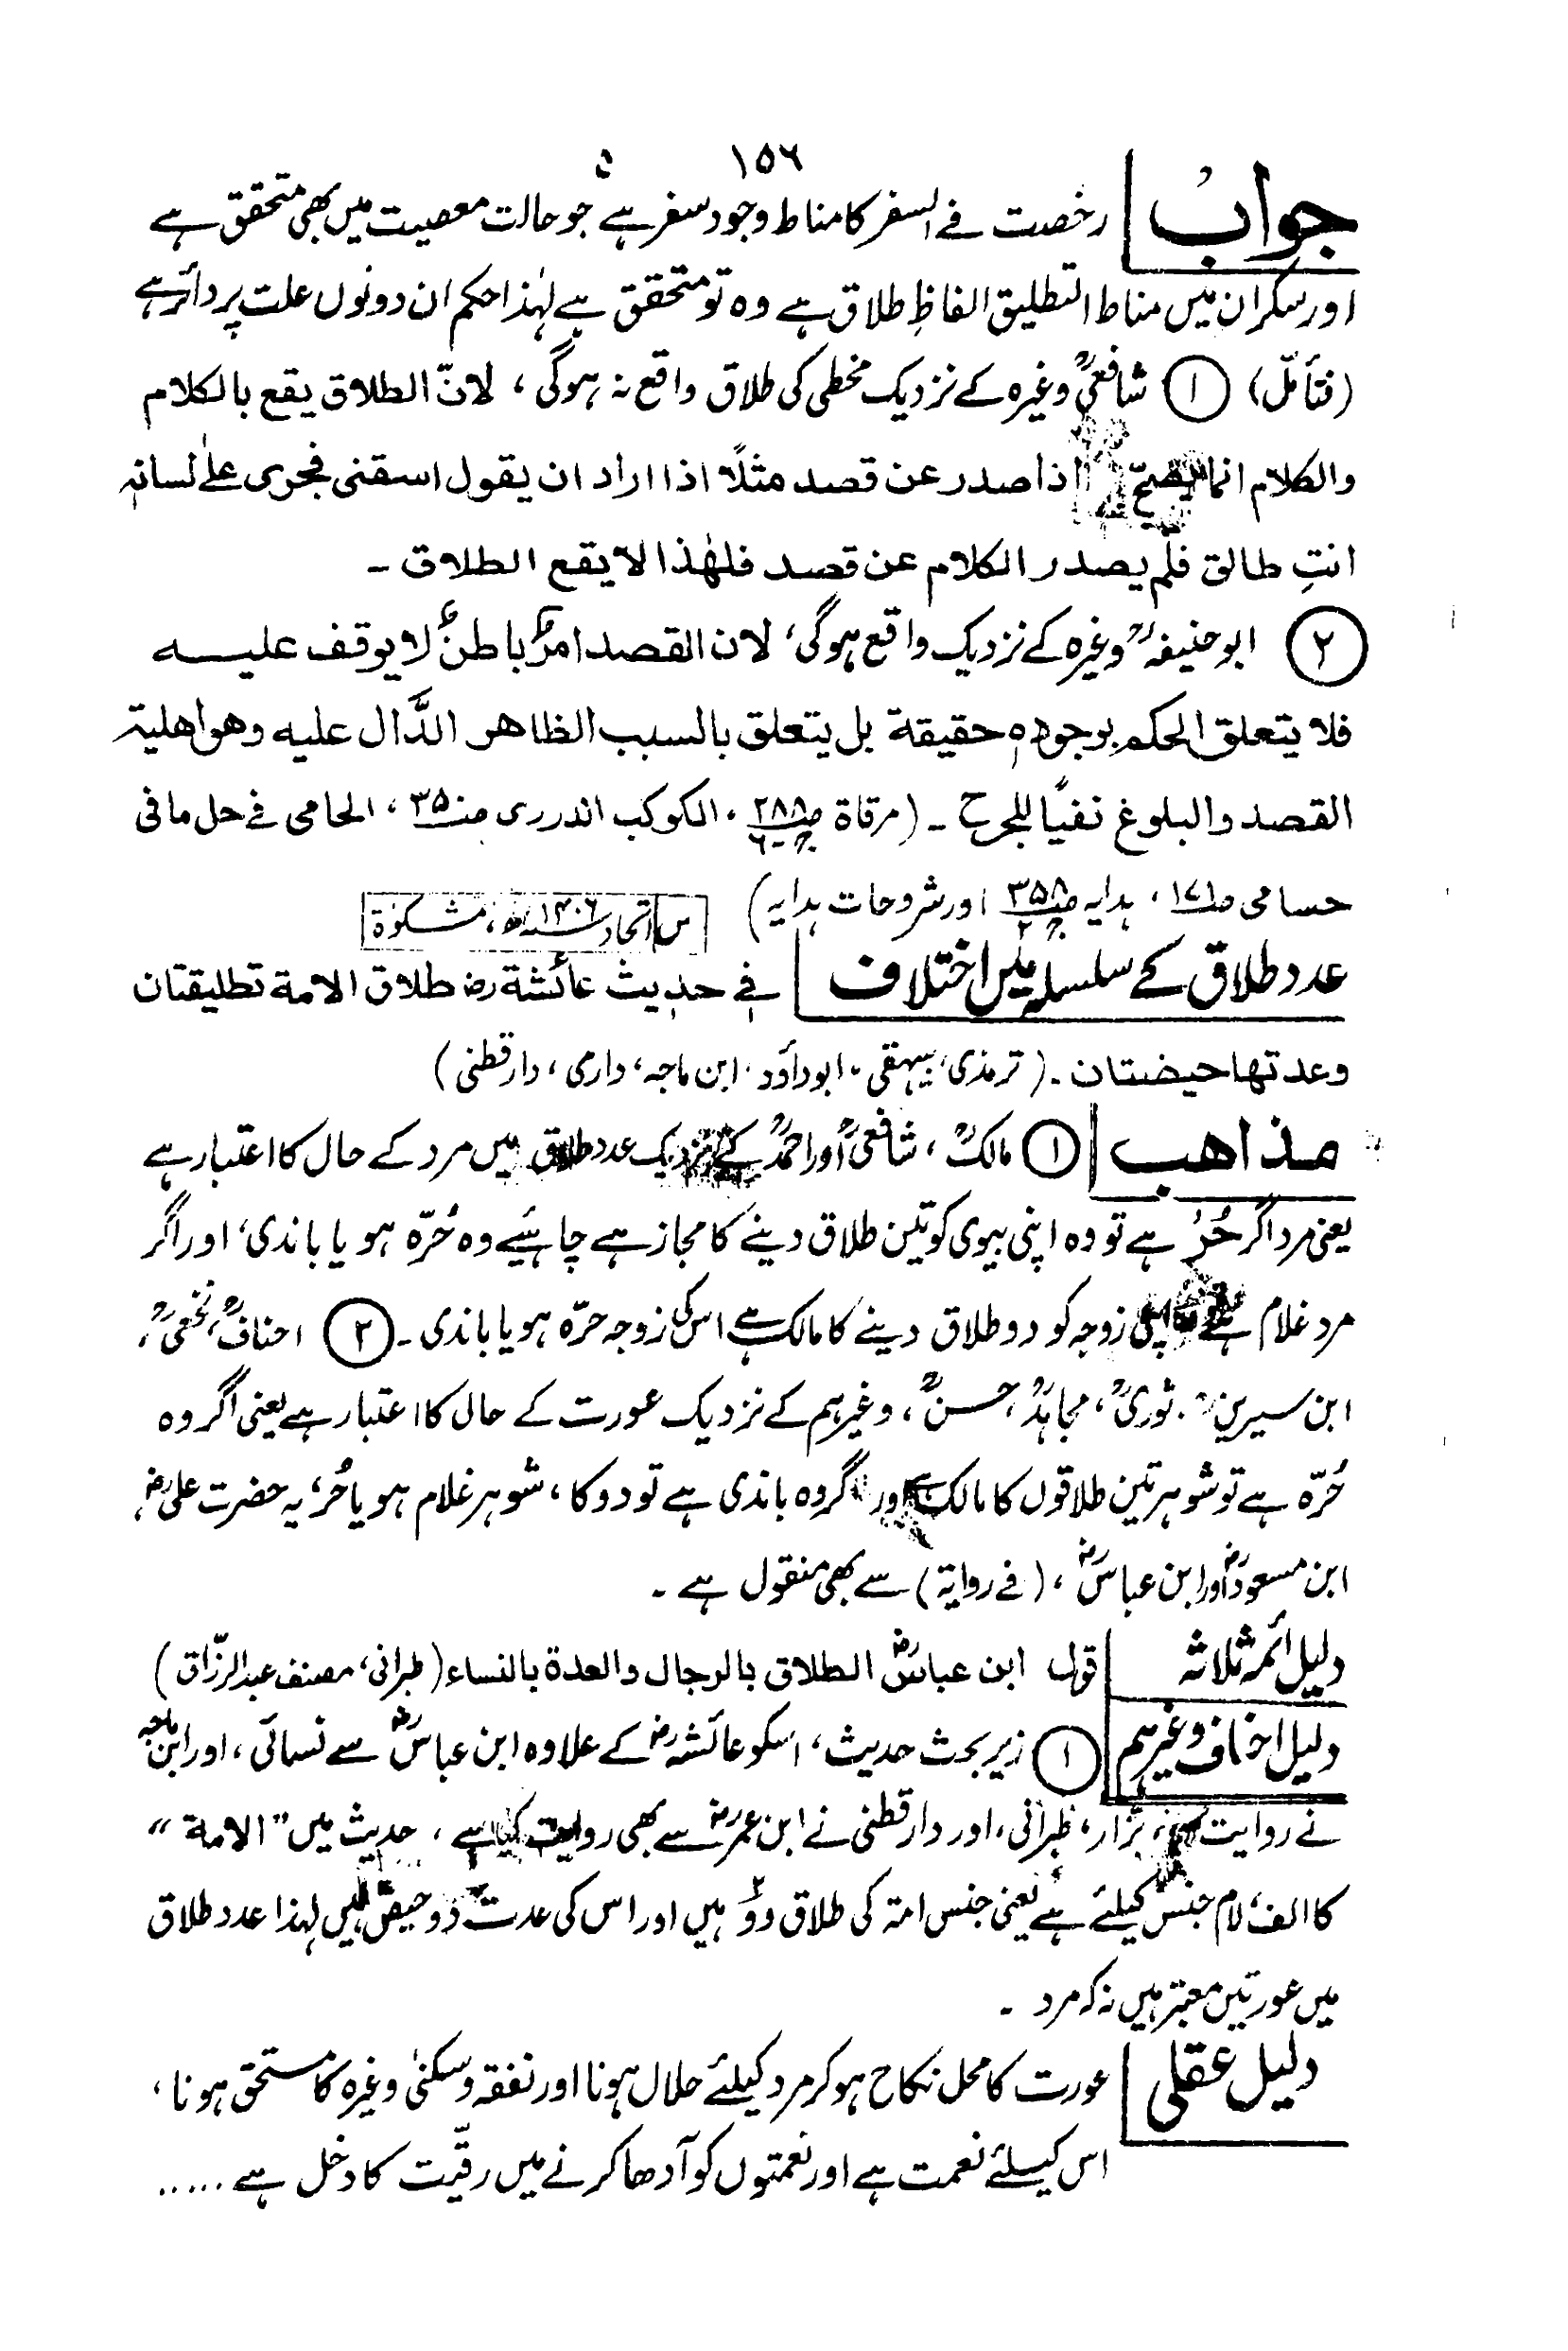 ۱۵۶
جواب رخصت فے السفر کا مناط وجود سفر ہے جو حالت معصیت میں بھی متحقق ہے
اور سکران میں مناط التطلیق الفاظِ طلاق ہے وہ تو متحقق ہے لہٰذا حکم ان دونوں علت پر دائر ہے
(فتأملّ) ① شافعیؒ وغیرہ کے نزدیک مخطی کی طلاق واقع نہ ہوگی، لانّ الطلاق یقع بالکلام
والکلام انما یصحّ اذا صدر عن قصد مثلًا اذا اراد ان یقول اسقنی فجری علےٰ لسانہ
انتِ طالق فلم یصدر الکلام عن قصد فلھٰذا لا یقع الطلاق ۔
② ابو حنیفہؒ وغیرہ کے نزدیک واقع ہوگی، لان القصد امرٌ باطنٌ لا یوقف علیہ
فلا یتعلق الحکم بوجودہ حقیقة بل یتعلق بالسبب الظاھر الدَّال علیہ وھو اھلیۃ
القصد والبلوغ نفیًا للجرح ۔ (مرقاة ص۲۸۸ ج۶، الکوکب الدرری ص۳۵، الحامی فے حل مافی
حسامی ص۱۷۱، ہدایہ ص۳۵۸ ج۲ اور شروحات ہدایہ) س اتحاد ۱۴۰۶ھ، مشکوٰة
عدد طلاق کے سلسلہ میں اختلاف فے حدیث عائشة رض طلاق الامة تطلیقتان
وعدتھا حیضتان ۔ (ترمذی، بیہقی، ابوداؤد، ابن ماجہ، دارمی، دارقطنی)
مذاھب ① مالکؒ، شافعیؒ اور احمدؒ کے نزدیک عدد طلاق میں مرد کے حال کا اعتبار ہے
یعنی مرد اگر حُر ہے تو وہ اپنی بیوی کو تین طلاق دینے کا مجاز ہے چاہئیے وہ حُرّہ ہو یا باندی، اور اگر
مرد غلام ہے اپنی زوجہ کو دو طلاق دینے کا مالک ہے اس کی زوجہ حرّہ ہو یا باندی ۔ ② احنافؒ، نخعیؒ،
ابن سیرینؒ، ثوریؒ، مجاہدؒ، حسنؒ، وغیرہم کے نزدیک عورت کے حال کا اعتبار ہے یعنی اگر وہ
حُرّہ ہے تو شوہر تین طلاقوں کا مالک ہے اور اگر وہ باندی ہے تو دو کا، شوہر غلام ہو یا حُر، یہ حضرت علی رض،
ابن مسعودؓ اور ابن عباسؓ، (فے روایة) سے بھی منقول ہے ۔
دلیل ائمہ ثلاثہ قول ابن عباسؓ الطلاق بالرجال والعدة بالنساء (طبرانی، مصنف عبدالرزّاق)
دلیل احناف وغیرہم ① زیر بحث حدیث، اسکو عائشہ رض کے علاوہ ابن عباسؓ سے نسائی، اور ابن ماجہ
نے روایت کی، بزّار، طبرانی، اور دارقطنی نے ابن عمرؓ سے بھی روایت کیا ہے، حدیث میں "الامة"
کا الف، لام جنس کیلئے ہے یعنی جنس امۃ کی طلاق دوؔ ہیں اور اس کی عدت دوؔ حیض ہیں لہذا عدد طلاق
میں عورتیں معتبر ہیں نہ کہ مرد ۔
دلیل عقلی عورت کا محل نکاح ہو کر مرد کیلئے حلال ہونا اور نفقہ و سکنیٰ وغیرہ کا مستحق ہونا،
اس کیلئے نعمت ہے اور نعمتوں کو آدھا کرنے میں رقّیت کا دخل ہے .....